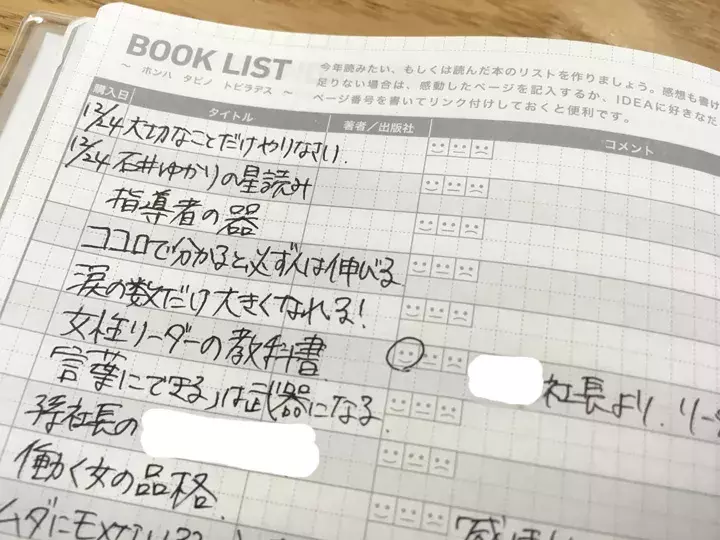 BOOK LIST
～ ホンハ タビノ トビラデス ～
今年読みたい、もしくは読んだ本のリストを作りましょう。感想も書け
足りない場合は、感動したページを記入するか、IDEAに好きなだ
ページ番号を書いてリンク付けしておくと便利です。
購入日 タイトル 著者／出版社 コメント
12/24 大切なことだけやりなさい.
12/24 石井ゆかりの星読み
指導者の器
ココロで分かると必ず人は伸びる
涙の数だけ大きくなれる!
女性リーダーの教科書
社長より. リー
言葉にできる」は武器になる.
孫社長の
働く女の品格.
ムダに